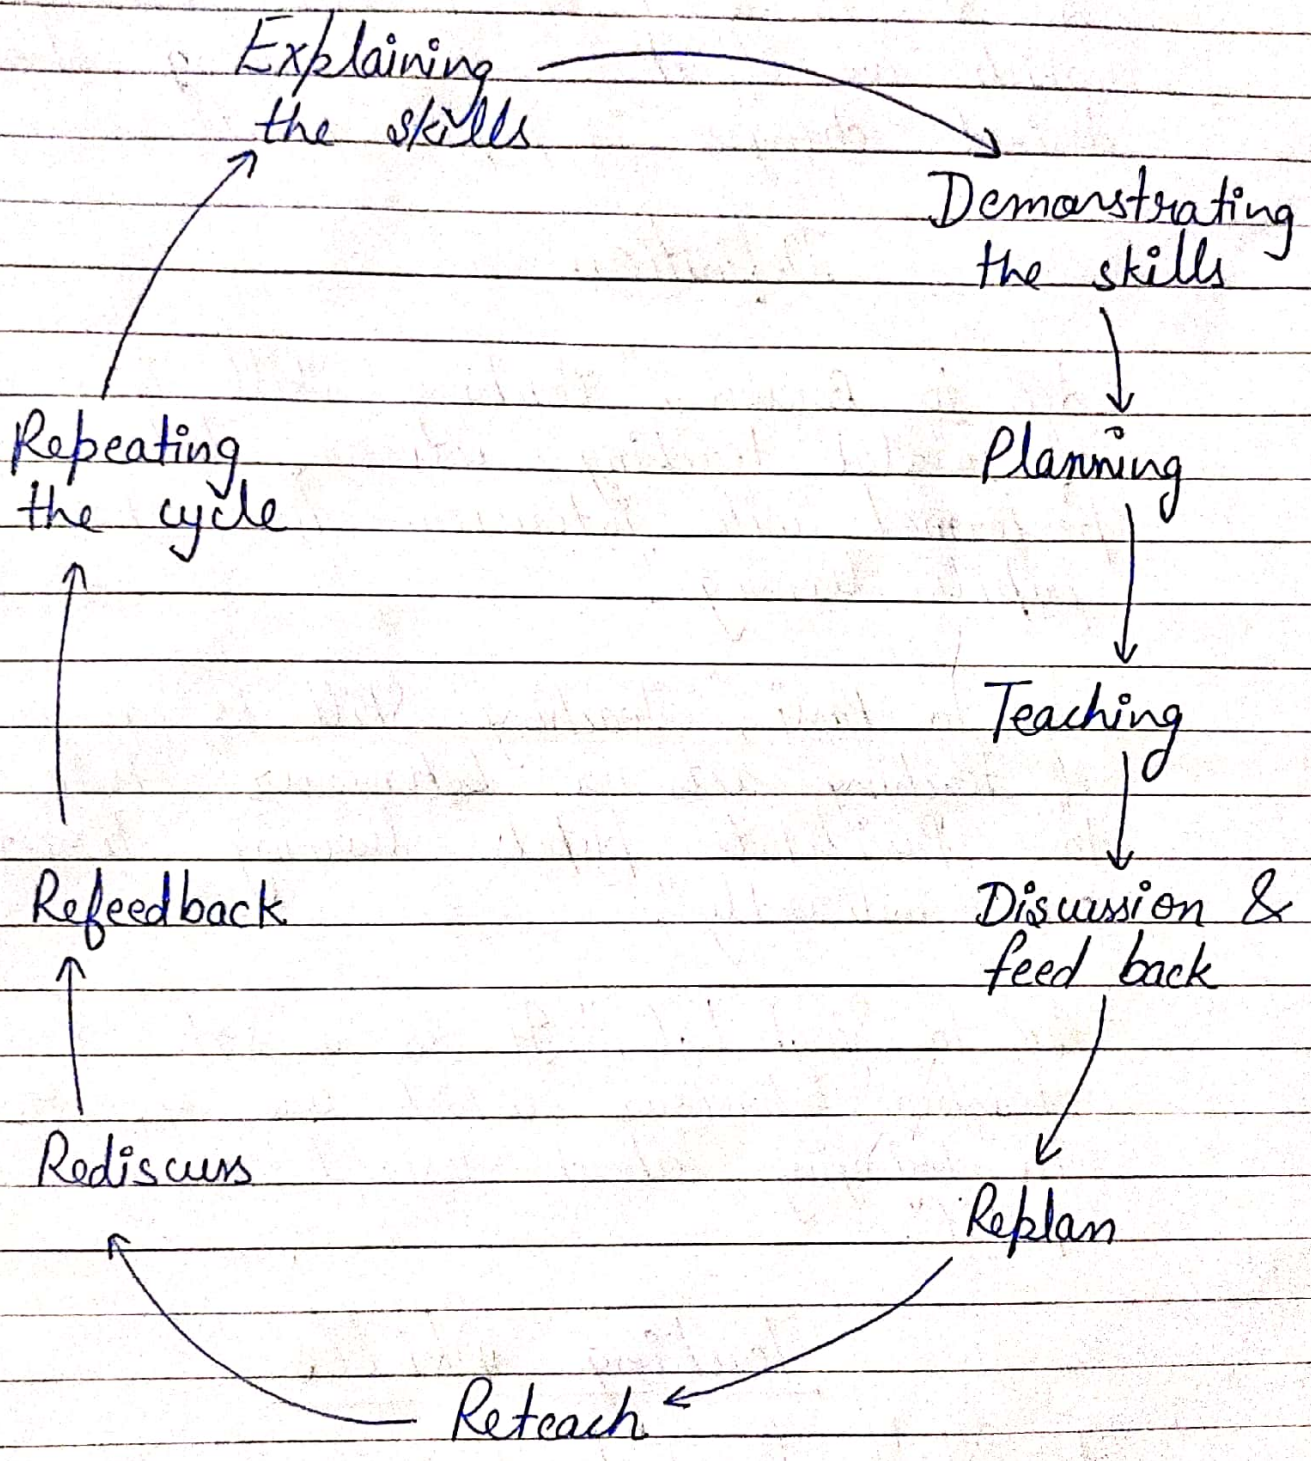 Explaining
the skills
Demonstrating
the skills
Planning
Teaching
Discussion &
feed back
Replan
Reteach
Rediscuss
Refeedback
Repeating
the cycle